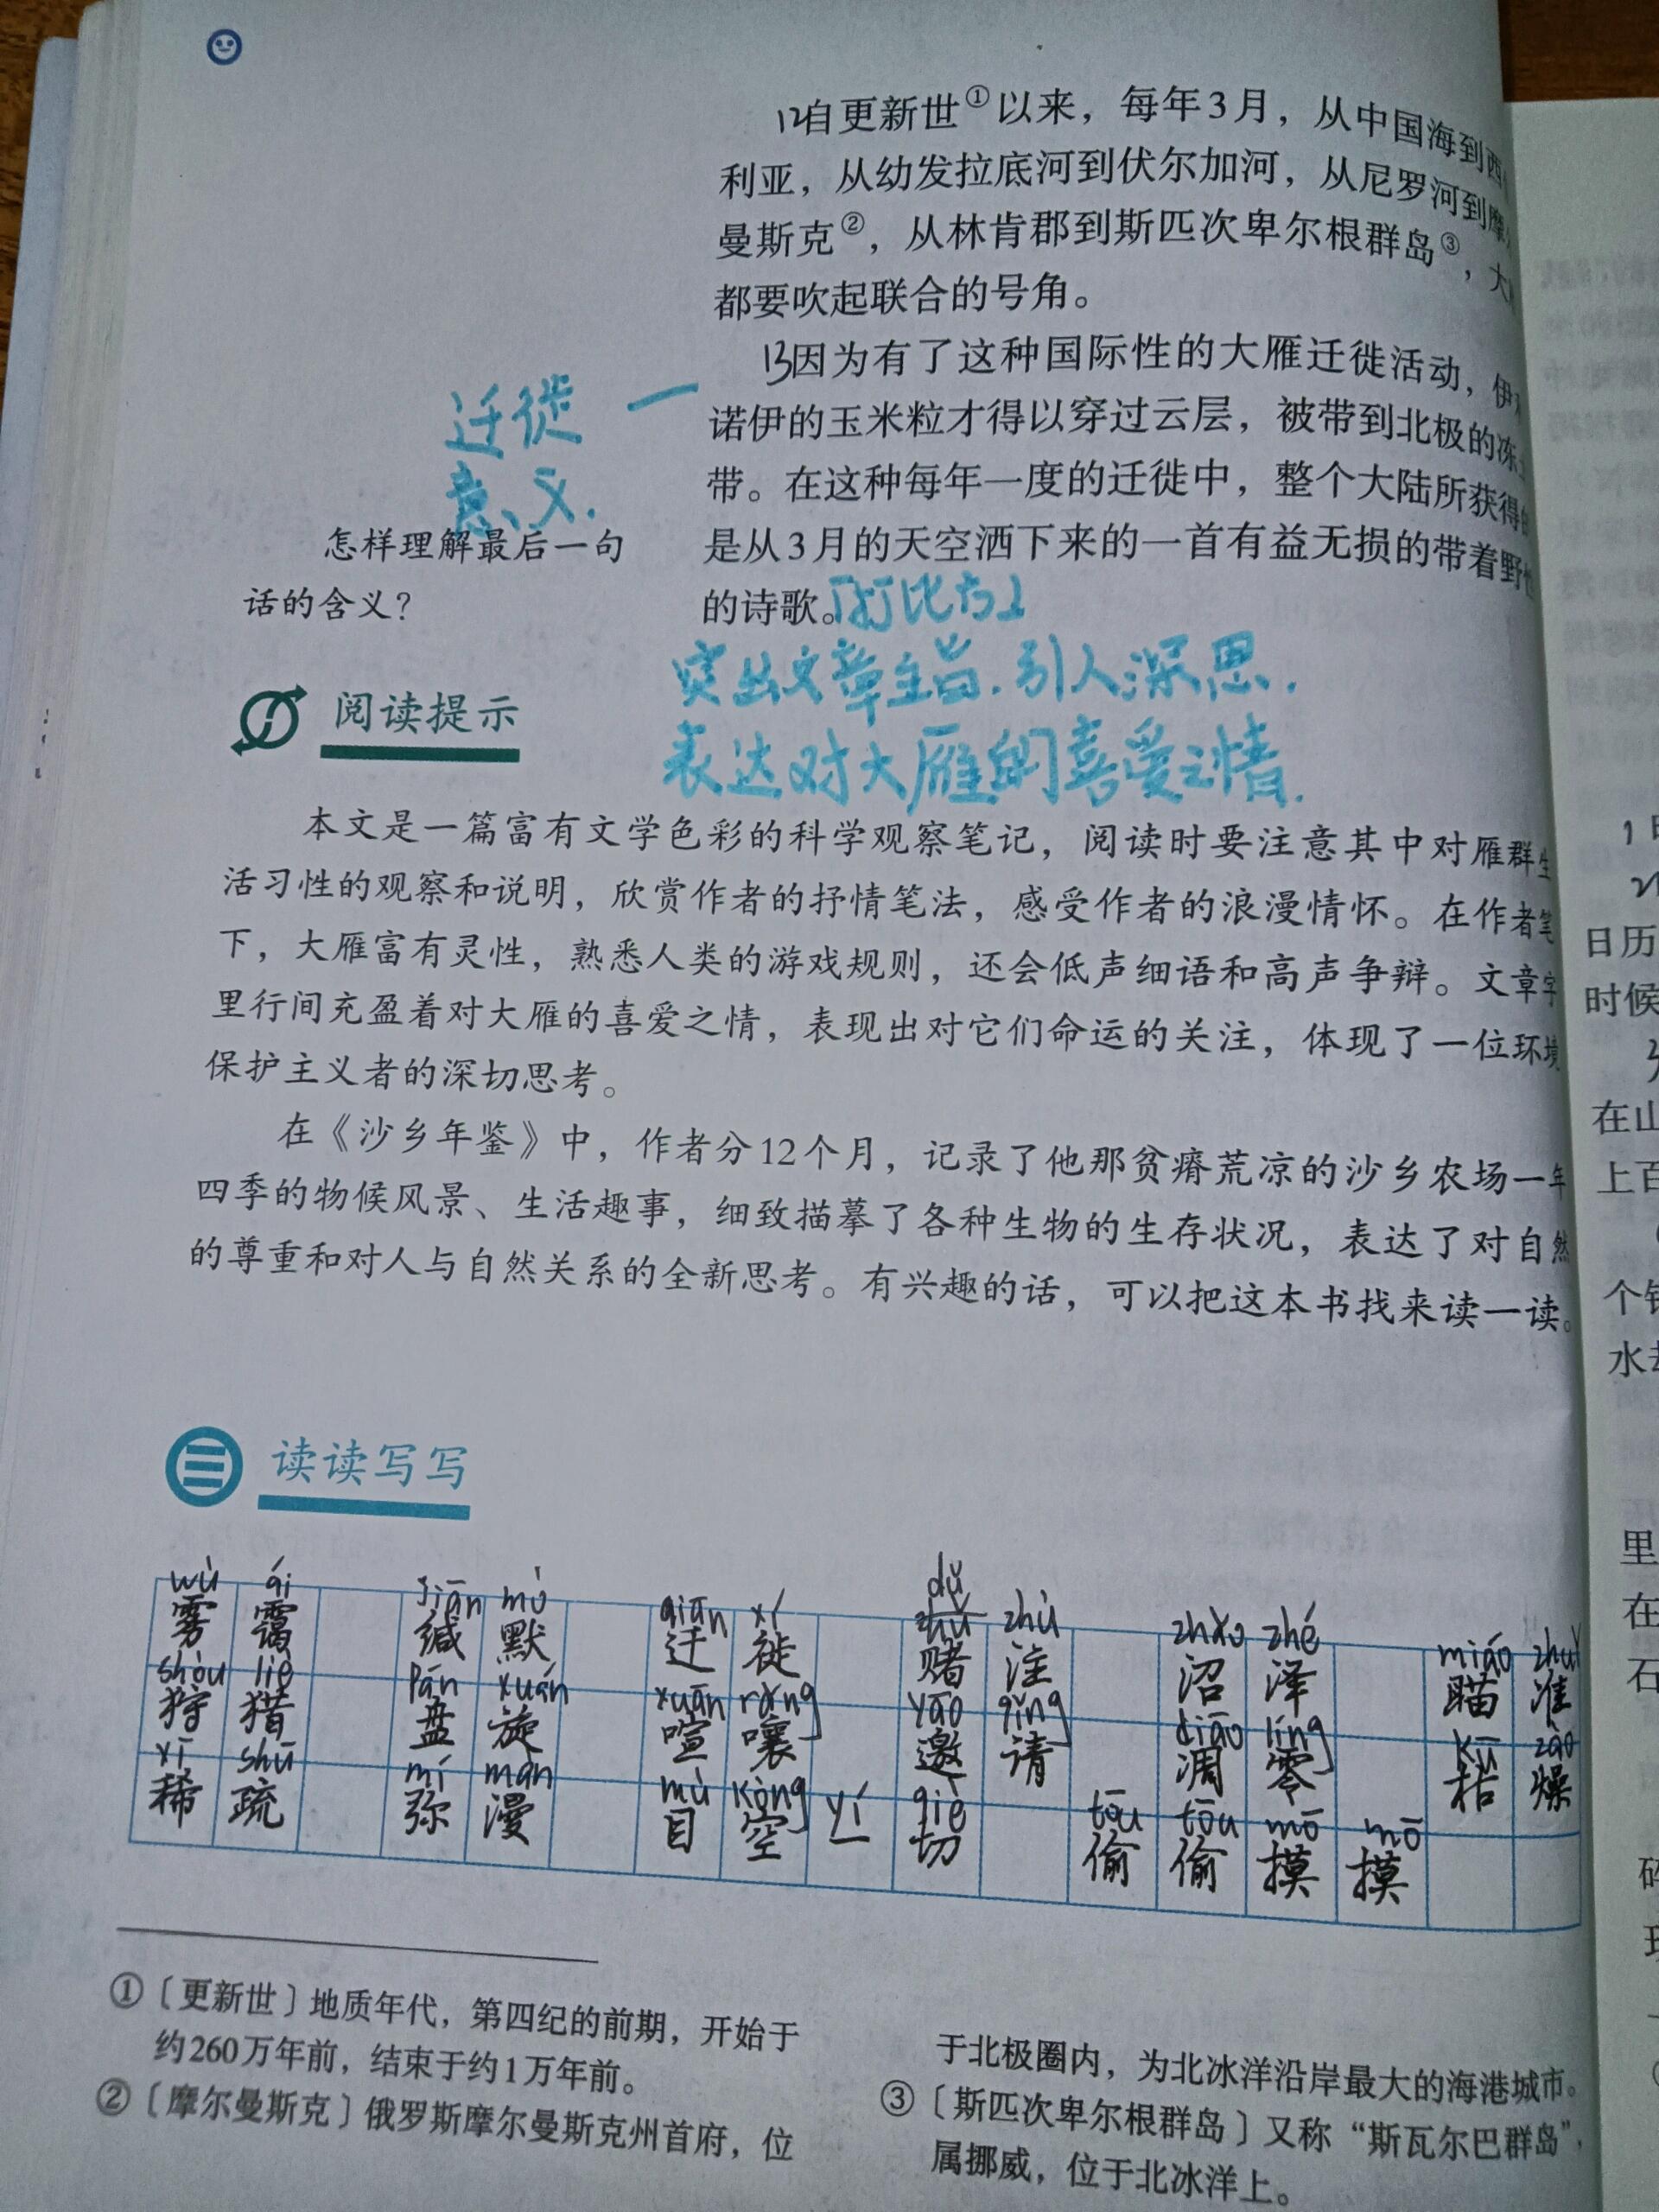 12自更新世①以来，每年3月，从中国海到西
利亚，从幼发拉底河到伏尔加河，从尼罗河到摩
曼斯克②，从林肯郡到斯匹次卑尔根群岛③，大
都要吹起联合的号角。
13因为有了这种国际性的大雁迁徙活动，伊
诺伊的玉米粒才得以穿过云层，被带到北极的冻
带。在这种每年一度的迁徙中，整个大陆所获得
是从3月的天空洒下来的一首有益无损的带着野
的诗歌。[打比方]
迁徙 一
意义.
怎样理解最后一句
话的含义？
突出文章主旨.引人深思.
表达对大雁的喜爱之情.
阅读提示
本文是一篇富有文学色彩的科学观察笔记，阅读时要注意其中对雁群生
活习性的观察和说明，欣赏作者的抒情笔法，感受作者的浪漫情怀。在作者笔
下，大雁富有灵性，熟悉人类的游戏规则，还会低声细语和高声争辩。文章字
里行间充盈着对大雁的喜爱之情，表现出对它们命运的关注，体现了一位环境
保护主义者的深切思考。
在《沙乡年鉴》中，作者分12个月，记录了他那贫瘠荒凉的沙乡农场一年
四季的物候风景、生活趣事，细致描摹了各种生物的生存状况，表达了对自然
的尊重和对人与自然关系的全新思考。有兴趣的话，可以把这本书找来读一读。
读读写写
wù ǎi jiān mò qiān xǐ dǔ zhù zhǎo zé miáo zhǔn
雾霭 缄默 迁徙 赌注 沼泽 瞄准
shòu liè pán xuán xuān rǎng yāo qǐng diāo líng kū zào
狩猎 盘旋 喧嚷 邀请 凋零 枯燥
xī shū mí màn mù kòng yí qiè tōu tōu mō mō
稀疏 弥漫 目空一切 偷偷摸摸
①〔更新世〕地质年代，第四纪的前期，开始于
约260万年前，结束于约1万年前。
②〔摩尔曼斯克〕俄罗斯摩尔曼斯克州首府，位
于北极圈内，为北冰洋沿岸最大的海港城市。
③〔斯匹次卑尔根群岛〕又称“斯瓦尔巴群岛”，
属挪威，位于北冰洋上。
日历
时候
在山
上百
个
水
里
在
石